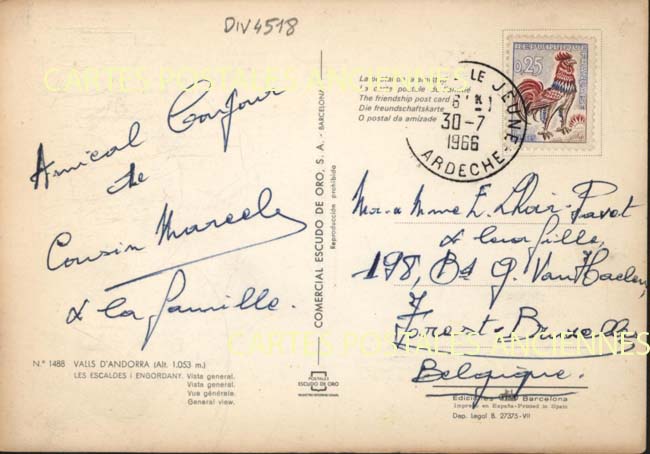 DIV4518
CARTES POSTALES ANCIENNES
Amical Bonjour
de
Cousin Marcel
& la famille.
N.º 1488 VALLS D'ANDORRA (Alt. 1.053 m.)
LES ESCALDES i ENGORDANY. Vista general.
Vista general.
Vue générale.
General view.
COMERCIAL ESCUDO DE ORO, S. A. - BARCELONA
Reproducción prohibida
POSTALES
ESCUDO DE ORO
La carte postale
The friendship post card
Die freundschaftskarte
O postal da amizade
LE JEUNE
30-7
1966
ARDECHE
REPUBLIQUE
0,25
Mr & Mme E. Pavot
& leur fille,
198, Bd G. Van Haelen,
Forest-Bruxelles
Belgique.
CARTES POSTALES ANCIENNES
Ediciones Barcelona
Impreso en España-Printed in Spain
Dep. Legal B. 27375-VII